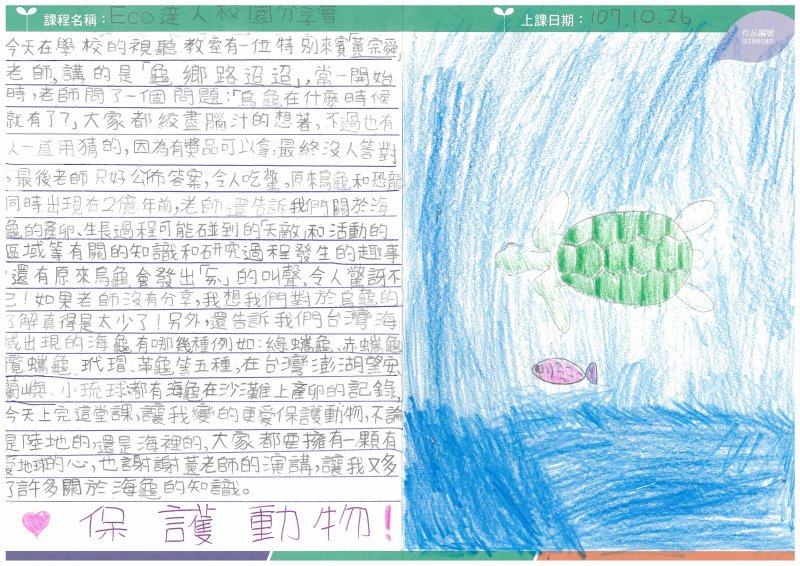 課程名稱：Eco達人校園分享會
上課日期：107.10.26
作品編號
今天在學校的視聽教室有一位特別來賓黃宗舜
老師,講的是「龜鄉路迢迢」,當一開始
時,老師問了一個問題:「烏龜在什麼時候
就有了?」大家都絞盡腦汁的想著,不過也有
人一直用猜的,因為有獎品可以拿,最終沒人答對
,最後老師只好公佈答案,令人吃驚,原來烏龜和恐龍
同時出現在2億年前,老師還告訴我們關於海
龜的產卵、生長過程可能碰到的「天敵」和活動的
區域等有關的知識和研究過程發生的趣事
,還有原來烏龜會發出「ㄞ」的叫聲,令人驚訝不
已!如果老師沒有分享,我想我們對於烏龜的
了解真得是太少了!另外,還告訴我們台灣海
域出現的海龜有哪幾種例如:綠蠵龜、赤蠵龜
欖蠵龜、玳瑁、革龜等五種,在台灣澎湖望安
蘭嶼、小琉球都有海龜在沙灘上產卵的記錄,
今天上完這堂課,讓我變的更愛保護動物,不論
是陸地的,還是海裡的,大家都要擁有一顆有
愛地球的心,也謝謝黃老師的演講,讓我又多
了許多關於海龜的知識。
保護動物!